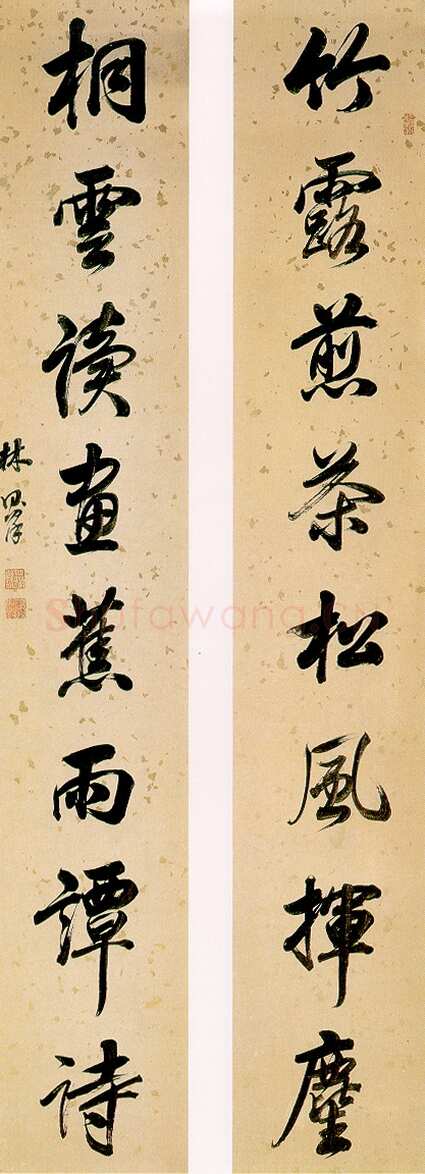 竹露煎茶松風揮麈
桐雲讀畫蕉雨譚詩
林則徐
Shufawang.CN